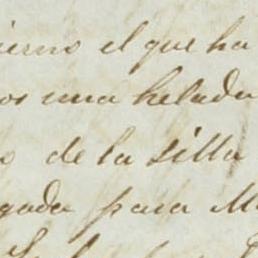 ierno el que ha
os una helada
o de la silla
gada para M